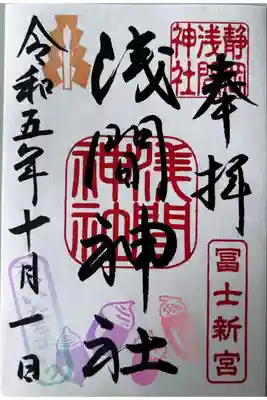 奉拝
静岡
浅間
神社
冨士新宮
浅間神社
浅間
神社
令和五年十月一日